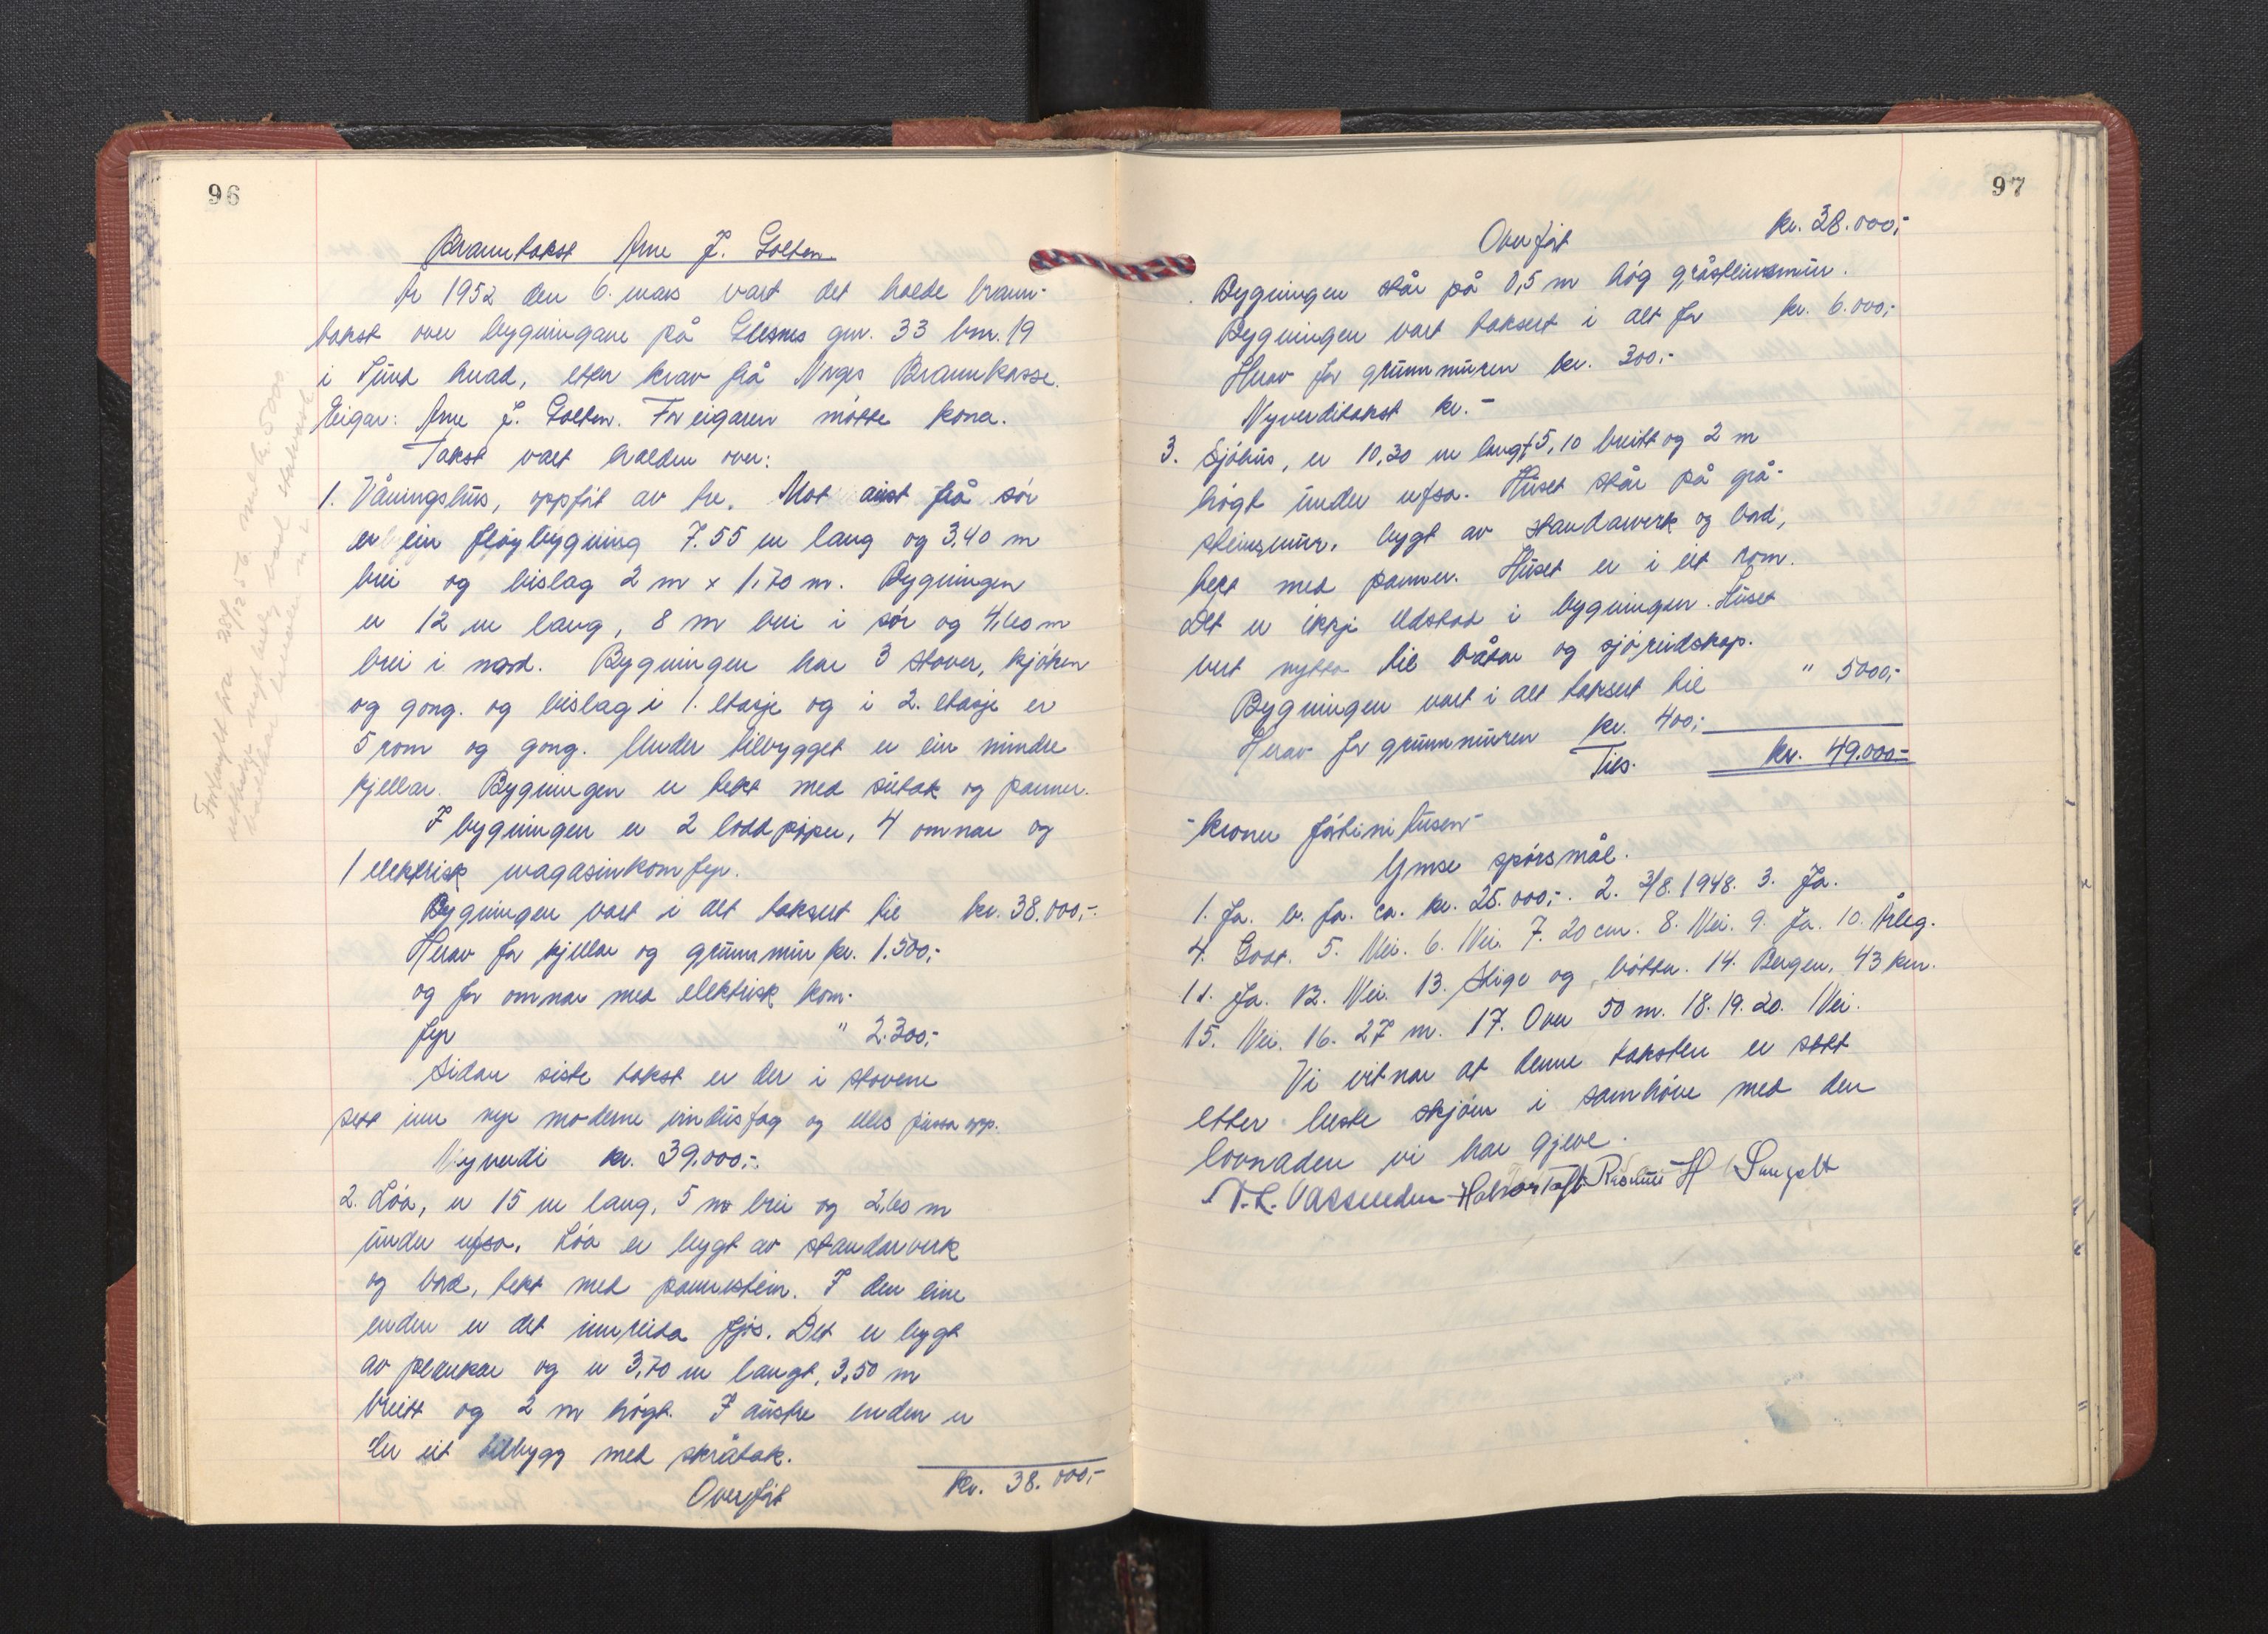 96
Branntakst Arne J. Golten
År 1952 den 6. mars vart det halde brann-
takst over bygningane på Glesnes gnr. 33 bnr. 19
i Sund herad, etter krav frå Norges Brannkasse.
Eigar: Arne J. Golten. For eigaren møtte kona.
Takst vart halden over:
1. Våningshus, oppført av tre. Mot aust frå sør
er ein fløybygning 7.55 m lang og 3,40 m
brei og bislag 2 m x 1,70 m. Bygningen
er 12 m lang, 8 m brei i sør og 4,60 m
brei i nord. Bygningen har 3 stover, kjøken
og gong. og bislag i 1. etasje og i 2. etasje er
5 rom og gong. Under tilbygget er ein mindre
kjellar. Bygningen er tekt med sutak og panner.
I bygningen er 2 loddpiper, 4 omnar og
1 elektrisk magasinkomfyr.
Bygningen vart i alt taksert til kr. 38.000,-
Herav for kjellar og grunnmur kr. 1.500,-
og for omnar med elektrisk kom-
fyr " 2.300,-
Sidan siste takst er der i stovene
sett inn nye moderne vindusfag og elles pussa opp.
Nyverdi kr. 39.000,-
2. Løa, er 15 m lang, 5 m brei og 2,60 m
under ufsa. Løa er bygt av standarverk
og bord, tekt med pannestein. I den eine
enden er det innreida fjøs. Det er bygt
av plankar og er 3,70 m langt, 3,50 m
breitt og 2 m høgt. I austre enden er
der eit tilbygg med skråtak.
Overført kr. 38.000,-
97
Overført kr. 38.000,-
Bygningen står på 0,5 m høg gråsteinsmur.
Bygningen vart taksert i alt for kr. 6.000,-
Herav for grunnmuren kr. 300,-
Nyverditakst kr. -
3. Sjøhus, er 10,30 m langt, 5,10 breitt og 2 m
høgt under ufsa. Huset står på grå-
steinsmur. bygt av standarverk og bord,
tekt med panner. Huset er i eit rom.
Det er ikkje eldstad i bygningen. Huset
vert nytta til båtar og sjøreidskap.
Bygningen vart i alt taksert til " 5000,-
Herav for grunnmuren kr. 400,-
Tils. kr. 49.000,-
- kroner førtinitusen -
Ymse spørsmål.
1. Ja. b. Ja. ca. kr. 25.000,-. 2. 3/8. 1948. 3. Ja.
4. Godt. 5. Nei. 6. Nei. 7. 20 cm. 8. Nei. 9. Ja. 10. Årleg.
11. Ja. 12. Nei. 13. Stige og bøtter. 14. Bergen, 43 km.
15. Nei. 16. 27 m. 17. Over 50 m. 18. 19. 20. Nei.
Vi vitnar at denne taksten er sett
etter beste skjøn i samhøve med den
lovnaden vi har gjeve.
N. L. Vassenden Halvor Toft Rasmus H